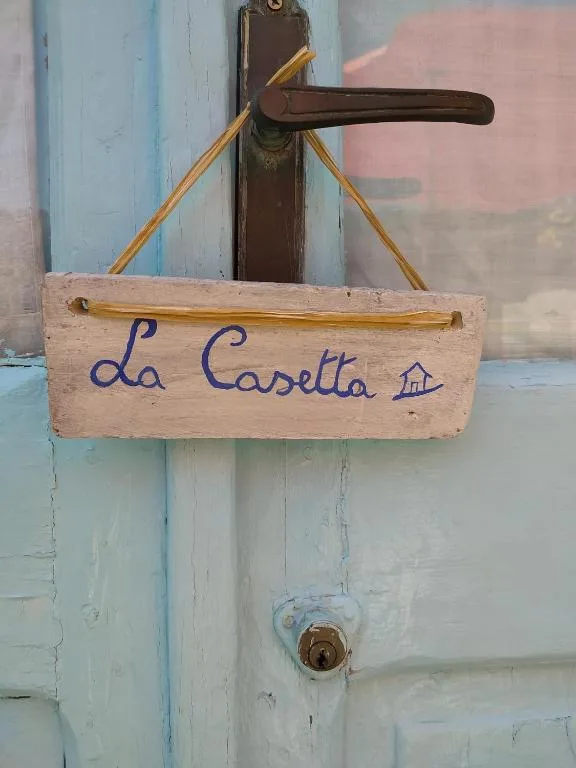 La Casetta